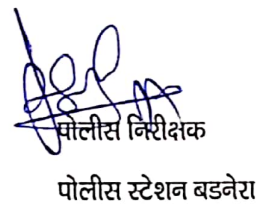 पोलीस निरीक्षक
पोलीस स्टेशन बडनेरा